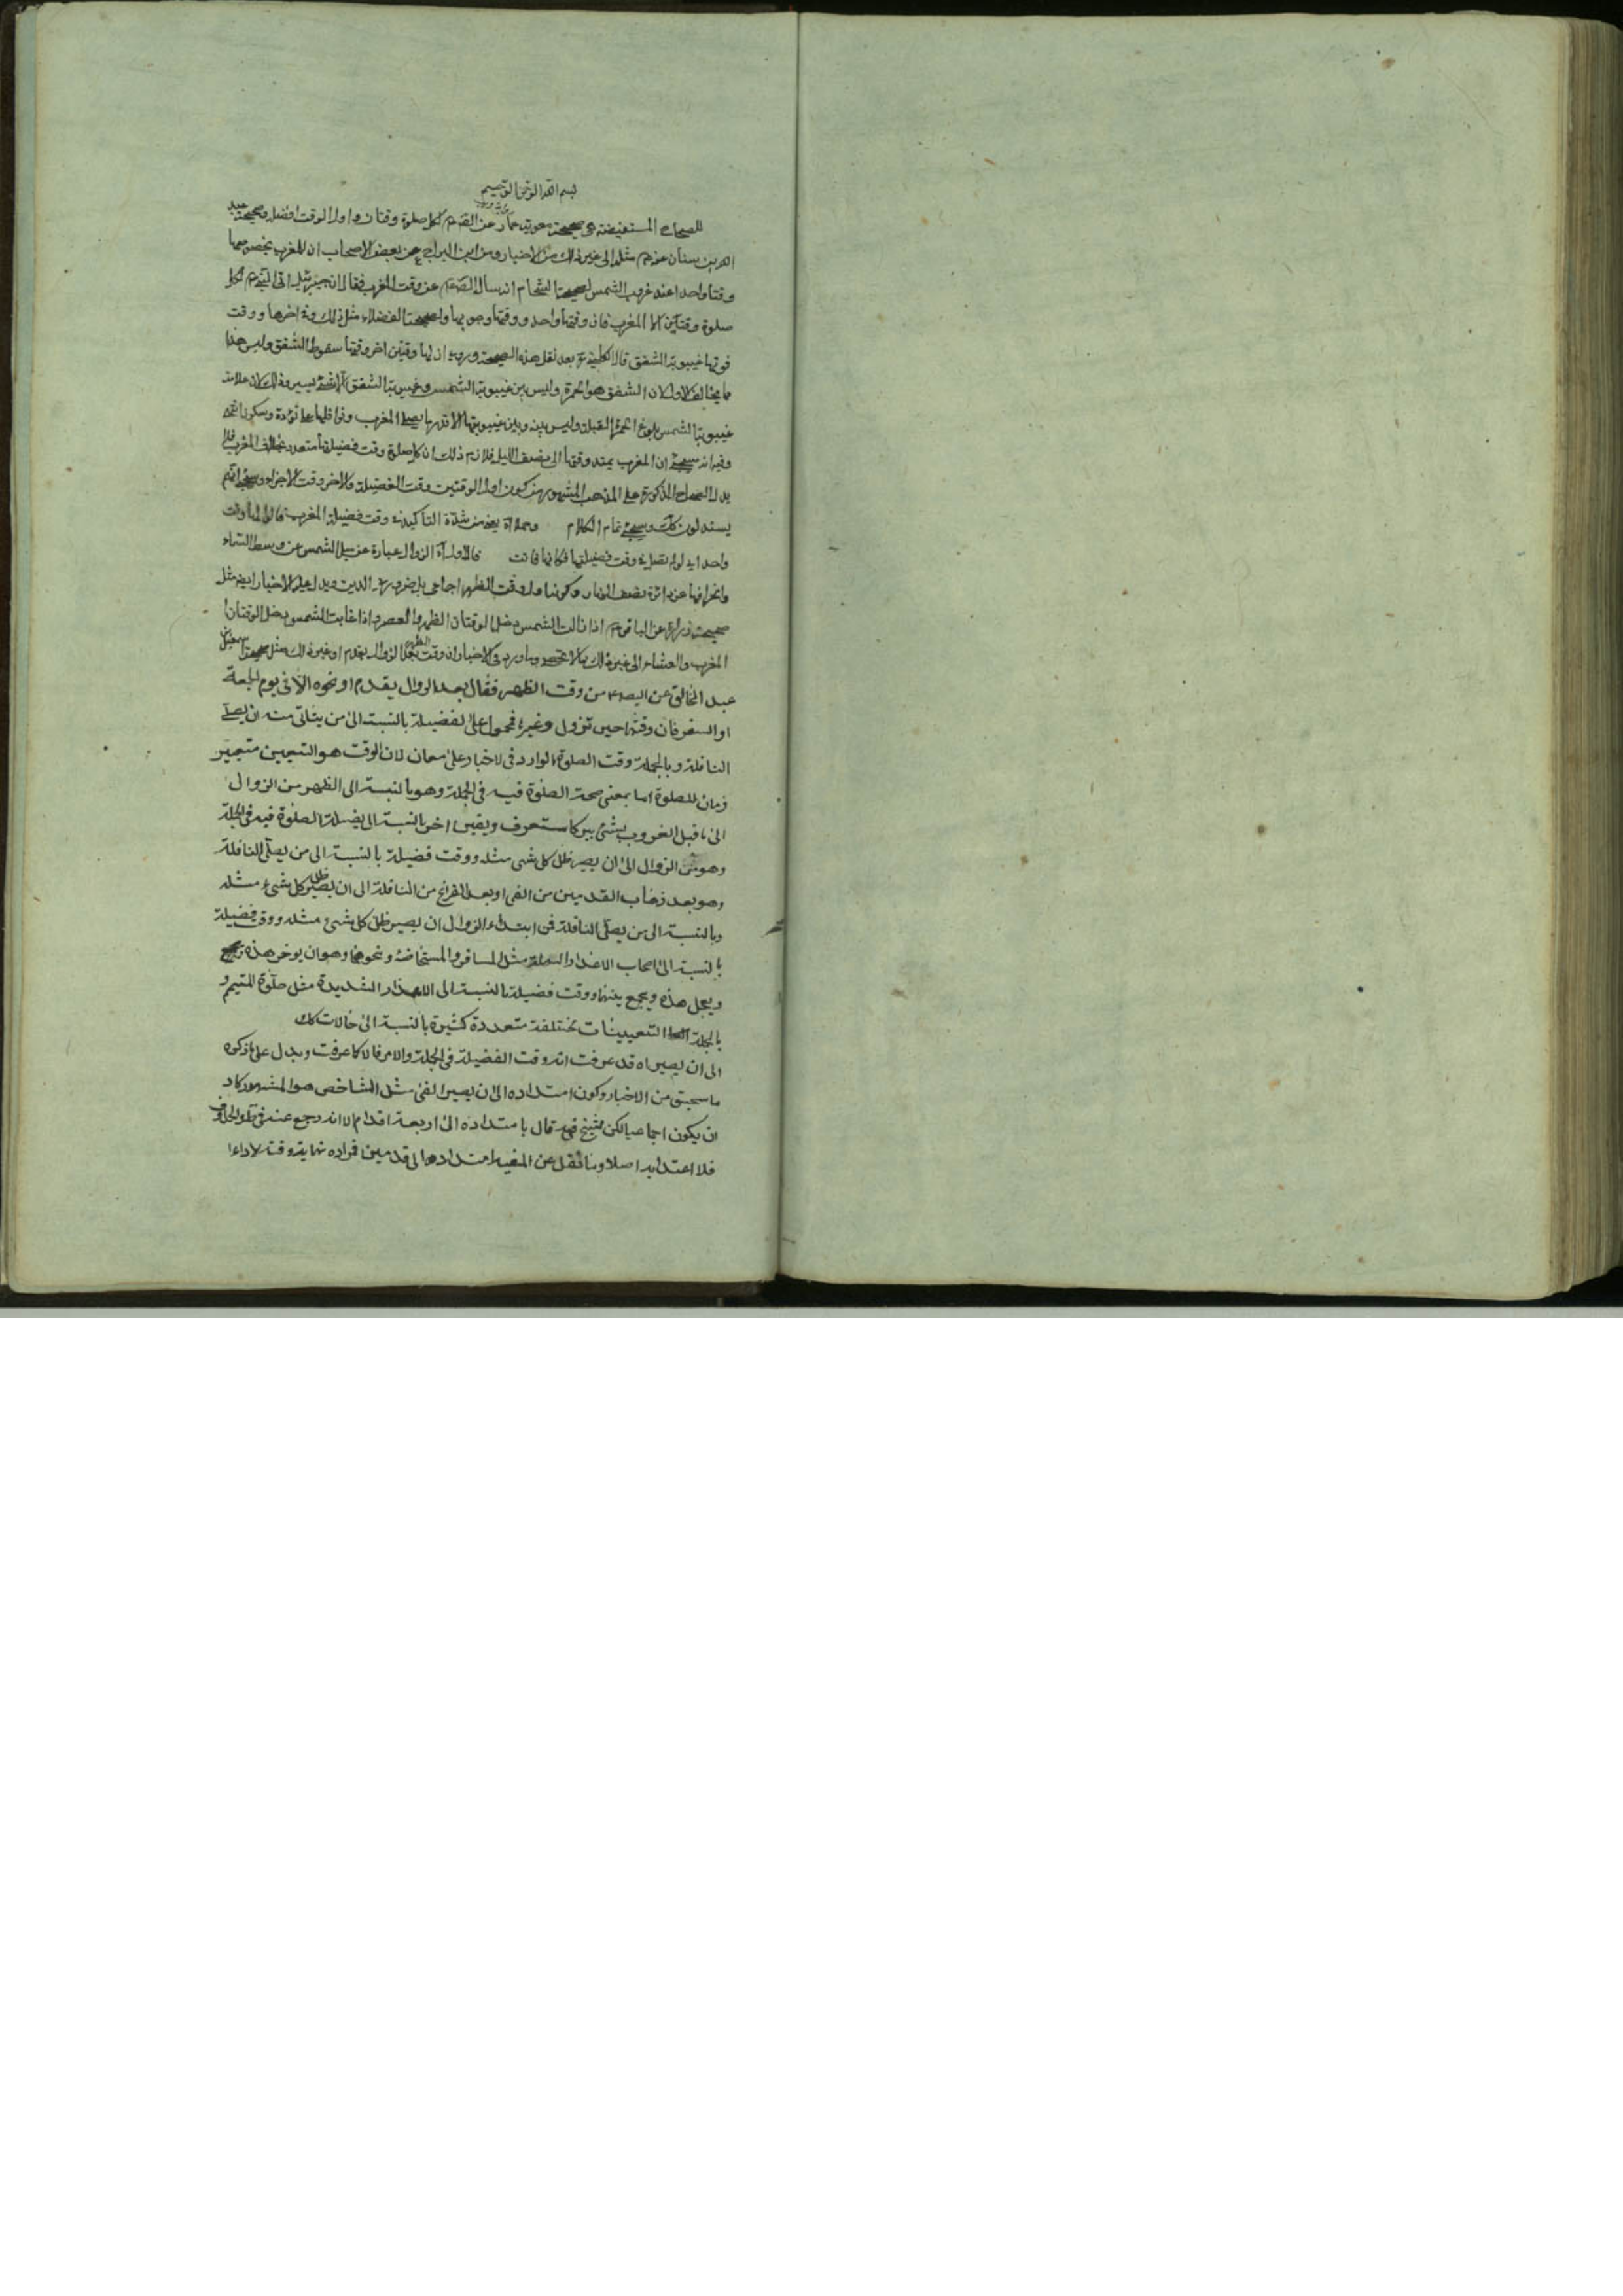 بسم الله الرحمن الرحيم
للصحاح المستفيضة صحيحة معوية بن عمار عن الصم لكل صلوة وقتان واول الوقت افضله وصحيحة عبد
الله بن سنان عنه م مثله الى غير ذلك من الاخبار وعن ابن البراج عن بعض الاصحاب ان للمغرب بخصوصها
وقتا واحدا عند غروب الشمس لصحيحة الشحام انه سال الصم عن وقت المغرب فقال ان جبرئيل اتى النبي م لكل
صلوة وقتين الا المغرب فان وقتها واحد ووقتها وجوبها وصحيحة الفضلاء مثل ذلك وفي اخرها ووقت
فوتها غيبوبة الشفق قال الكليني ره بعد نقل هذه الصحيحة وروى ان لها وقتين اخر وقتها سقوط الشفق وليس هذا
مما يخالف الاول لان الشفق هو الحمرة وليس بين غيبوبة الشمس وغيبوبة الشفق الا شئ يسير وذلك لان علامة
غيبوبة الشمس بلوغ الحمرة القبلة وليس بينه وبين غيبوبتها الا قدر ما يصلى المغرب ونوافلها على تؤدة وسكون انتهى
وفيه انه سيجئ ان المغرب يمتد وقتها الى نصف الليل فلازم ذلك ان كل صلوة وقت فضيلتها متعدد بخلاف المغرب فلا
يدل الصحاح المذكورة على المذهب المشهور من كون اول الوقتين وقت الفضيلة والاخر وقت الاجزاء وسيجئ انهم
يستدلون كك وسيجئ تمام الكلام وحملاه يعني من شدة التاكيد في وقت فضيلة المغرب قال لها وقت
واحد اي لو لم تصل في وقت فضيلتها فكانها فاتت قال الاول اه الزوال عبارة عن ميل الشمس عن وسط السماء
وانحرافها عن دائرة نصف النهار وكونها اول وقت الظهر اجماعي بل ضروري الدين ويدل عليه الاخبار ايضا مثل
صحيحة زرارة عن الباقر م اذا زالت الشمس دخل الوقتان الظهر والعصر واذا غابت الشمس دخل الوقتان
المغرب والعشاء الى غير ذلك مما لا تحصى وما ورد في الاخبار ان وقت الظهر بعد الزوال بقدم او غير ذلك مثل صحيحة سعيد بن
عبد الخالق عن الصم من وقت الظهر فقال بعد الزوال بقدم او نحوه الا في يوم الجمعة
او السفر فان وقتها حين تزول وغيره فمحمول على الفضيلة بالنسبة الى من يتاتى منه ان يصلي
النافلة وبالجملة وقت الصلوة الوارد في الاخبار على معان لان الوقت هو التعيين
زمان للصلوة اما بمعنى صحة الصلوة فيه في الجملة وهو بالنسبة الى الظهر من الزوال
الى ما قبل الغروب بشئ يسير كما ستعرف ويعين اخر بالنسبة الى فضيلة الصلوة فيه في الجملة
وهو من الزوال الى ان يصير ظل كل شئ مثله ووقت فضيلة بالنسبة الى من يصلي النافلة
وهو بعد ذهاب القدمين من الفئ او بعد الفراغ من النافلة الى ان يصير ظل كل شئ مثله
وبالنسبة الى من يصلي النافلة فمن ابتداء الزوال ان يصير ظل كل شئ مثله ووقت فضيلة
بالنسبة الى اصحاب الاعذار مثل المسافر والمستحاضة ونحوهما وهو ان يوخر هذه
ويعجل هذه ويجمع بينهما ووقت فضيلة بالنسبة الى الاعذار الشديدة مثل صلوة المتيمم و
بالجملة التعيينات مختلفة متعددة كثيرة بالنسبة الى حالات كك
الى ان يصير اه قد عرفت انه وقت الفضيلة في الجملة والامر فالا كما عرفت ويدل على ما ذكره
ما سبق من الاخبار وكون امتداده الى ان يصير الفئ مثل الشاخص هو المشهور كاد
ان يكون اجماعيا لكن الشيخ قال بامتداده الى اربعة اقدام الا انه رجع عنه في
فلا اعتداد به اصلا وما نقل عن المفيد امتداده الى قدمين فمراده نهاية وقت لاداء